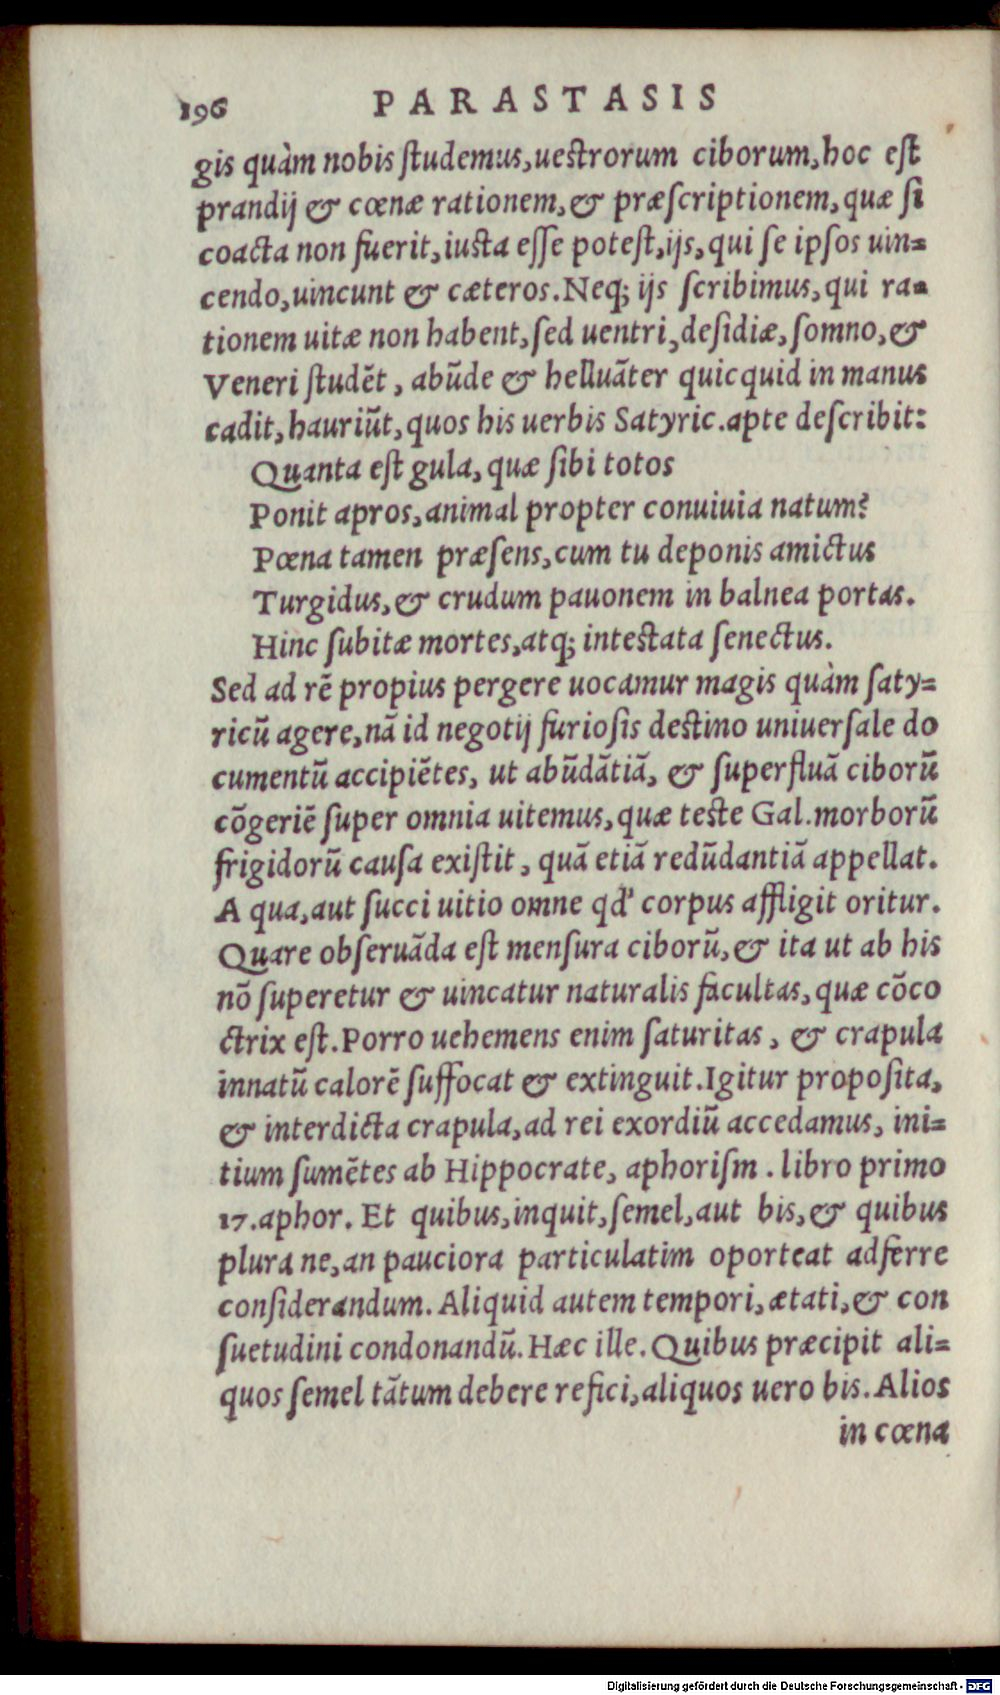 196 PARASTASIS
gis quàm nobis ſtudemus, ueſtrorum ciborum, hoc eſt
prandij & cœnæ rationem, & præſcriptionem, quæ ſi
coacta non fuerit, iuſta eſſe poteſt, ijs, qui ſe ipſos uin=
cendo, uincunt & cæteros. Neq; ijs ſcribimus, qui ra=
tionem uitæ non habent, ſed uentri, deſidiæ, ſomno, &
Veneri ſtudẽt, abũde & helluãter quicquid in manus
cadit, hauriũt, quos his uerbis Satyric. apte deſcribit:
Quanta eſt gula, quæ ſibi totos
Ponit apros, animal propter conuiuia natum?
Pœna tamen præſens, cum tu deponis amictus
Turgidus, & crudum pauonem in balnea portas.
Hinc ſubitæ mortes, atq; inteſtata ſenectus.
Sed ad rẽ propius pergere uocamur magis quàm ſaty=
ricũ agere, nã id negotij furioſis deſtino uniuerſale do
cumentũ accipiẽtes, ut abũdãtiã, & ſuperfluã ciborũ
cõgeriẽ ſuper omnia uitemus, quæ teſte Gal. morborũ
frigidorũ cauſa exiſtit, quã etiã redũdantiã appellat.
A qua, aut ſucci uitio omne qd' corpus affligit oritur.
Quare obſeruãda eſt menſura ciborũ, & ita ut ab his
nõ ſuperetur & uincatur naturalis facultas, quæ cõco
ctrix eſt. Porro uehemens enim ſaturitas, & crapula
innatũ calorẽ ſuffocat & extinguit. Igitur propoſita,
& interdicta crapula, ad rei exordiũ accedamus, ini=
tium ſumẽtes ab Hippocrate, aphoriſm. libro primo
17. aphor. Et quibus, inquit, ſemel, aut bis, & quibus
plura ne, an pauciora particulatim oporteat adferre
conſiderandum. Aliquid autem tempori, ætati, & con
ſuetudini condonandũ. Hæc ille. Quibus præcipit ali=
quos ſemel tãtum debere refici, aliquos uero bis. Alios
in cœna
Digitalisierung gefördert durch die Deutsche Forschungsgemeinschaft - DFG